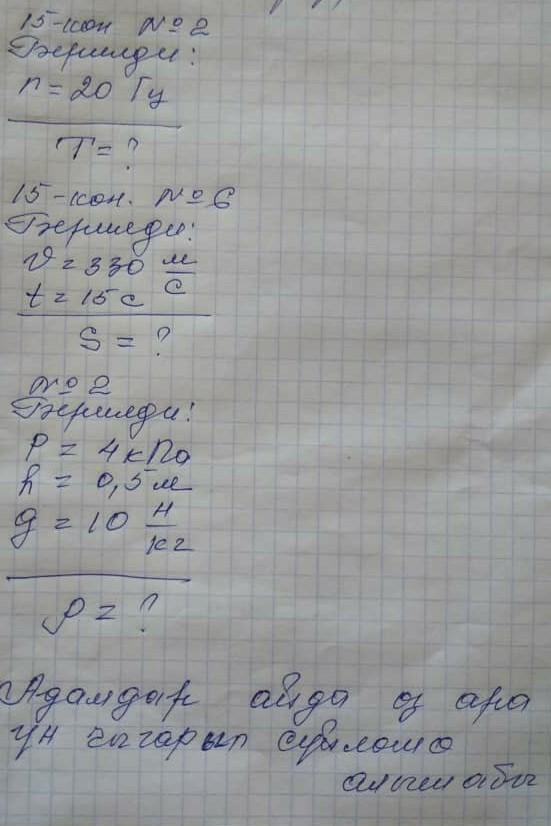 15-кон №2
Берилди:
n = 20 Гц
T = ?
15-кон. №6
Берилди:
v = 330 м/с
t = 15 с
S = ?
№2
Берилди:
P = 4 кПа
h = 0,5 м
g = 10 Н/кг
ρ = ?
Адамдар айда өз ара
үн чыгарып сүйлөшө
алышабы